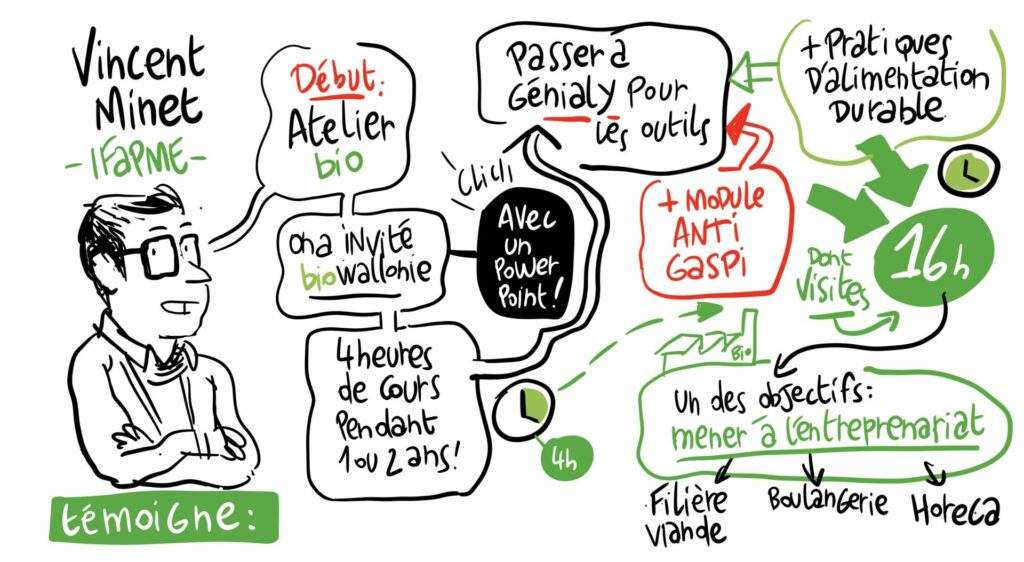 Vincent
Minet
-IFAPME-
témoigne:
Début:
Atelier
bio
on a invité
biowallonie
4 heures
de cours
Pendant
1 ou 2 ans!
Clic!
Avec
un
Power
Point!
4h
Passer à
Génialy pour
les outils
+ Module
Anti
Gaspi
+ Pratiques
D'alimentation
Durable
16h
Dont
Visites
Bio
Un des objectifs:
mener à l'entreprenariat
Filière
viande
Boulangerie
Horeca